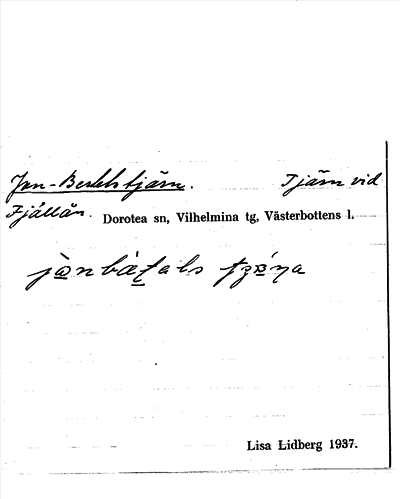 Jan-Bertelstjärn. Tjärn vid
Fjällån. Dorotea sn, Vilhelmina tg, Västerbottens l.
Lisa Lidberg 1937.